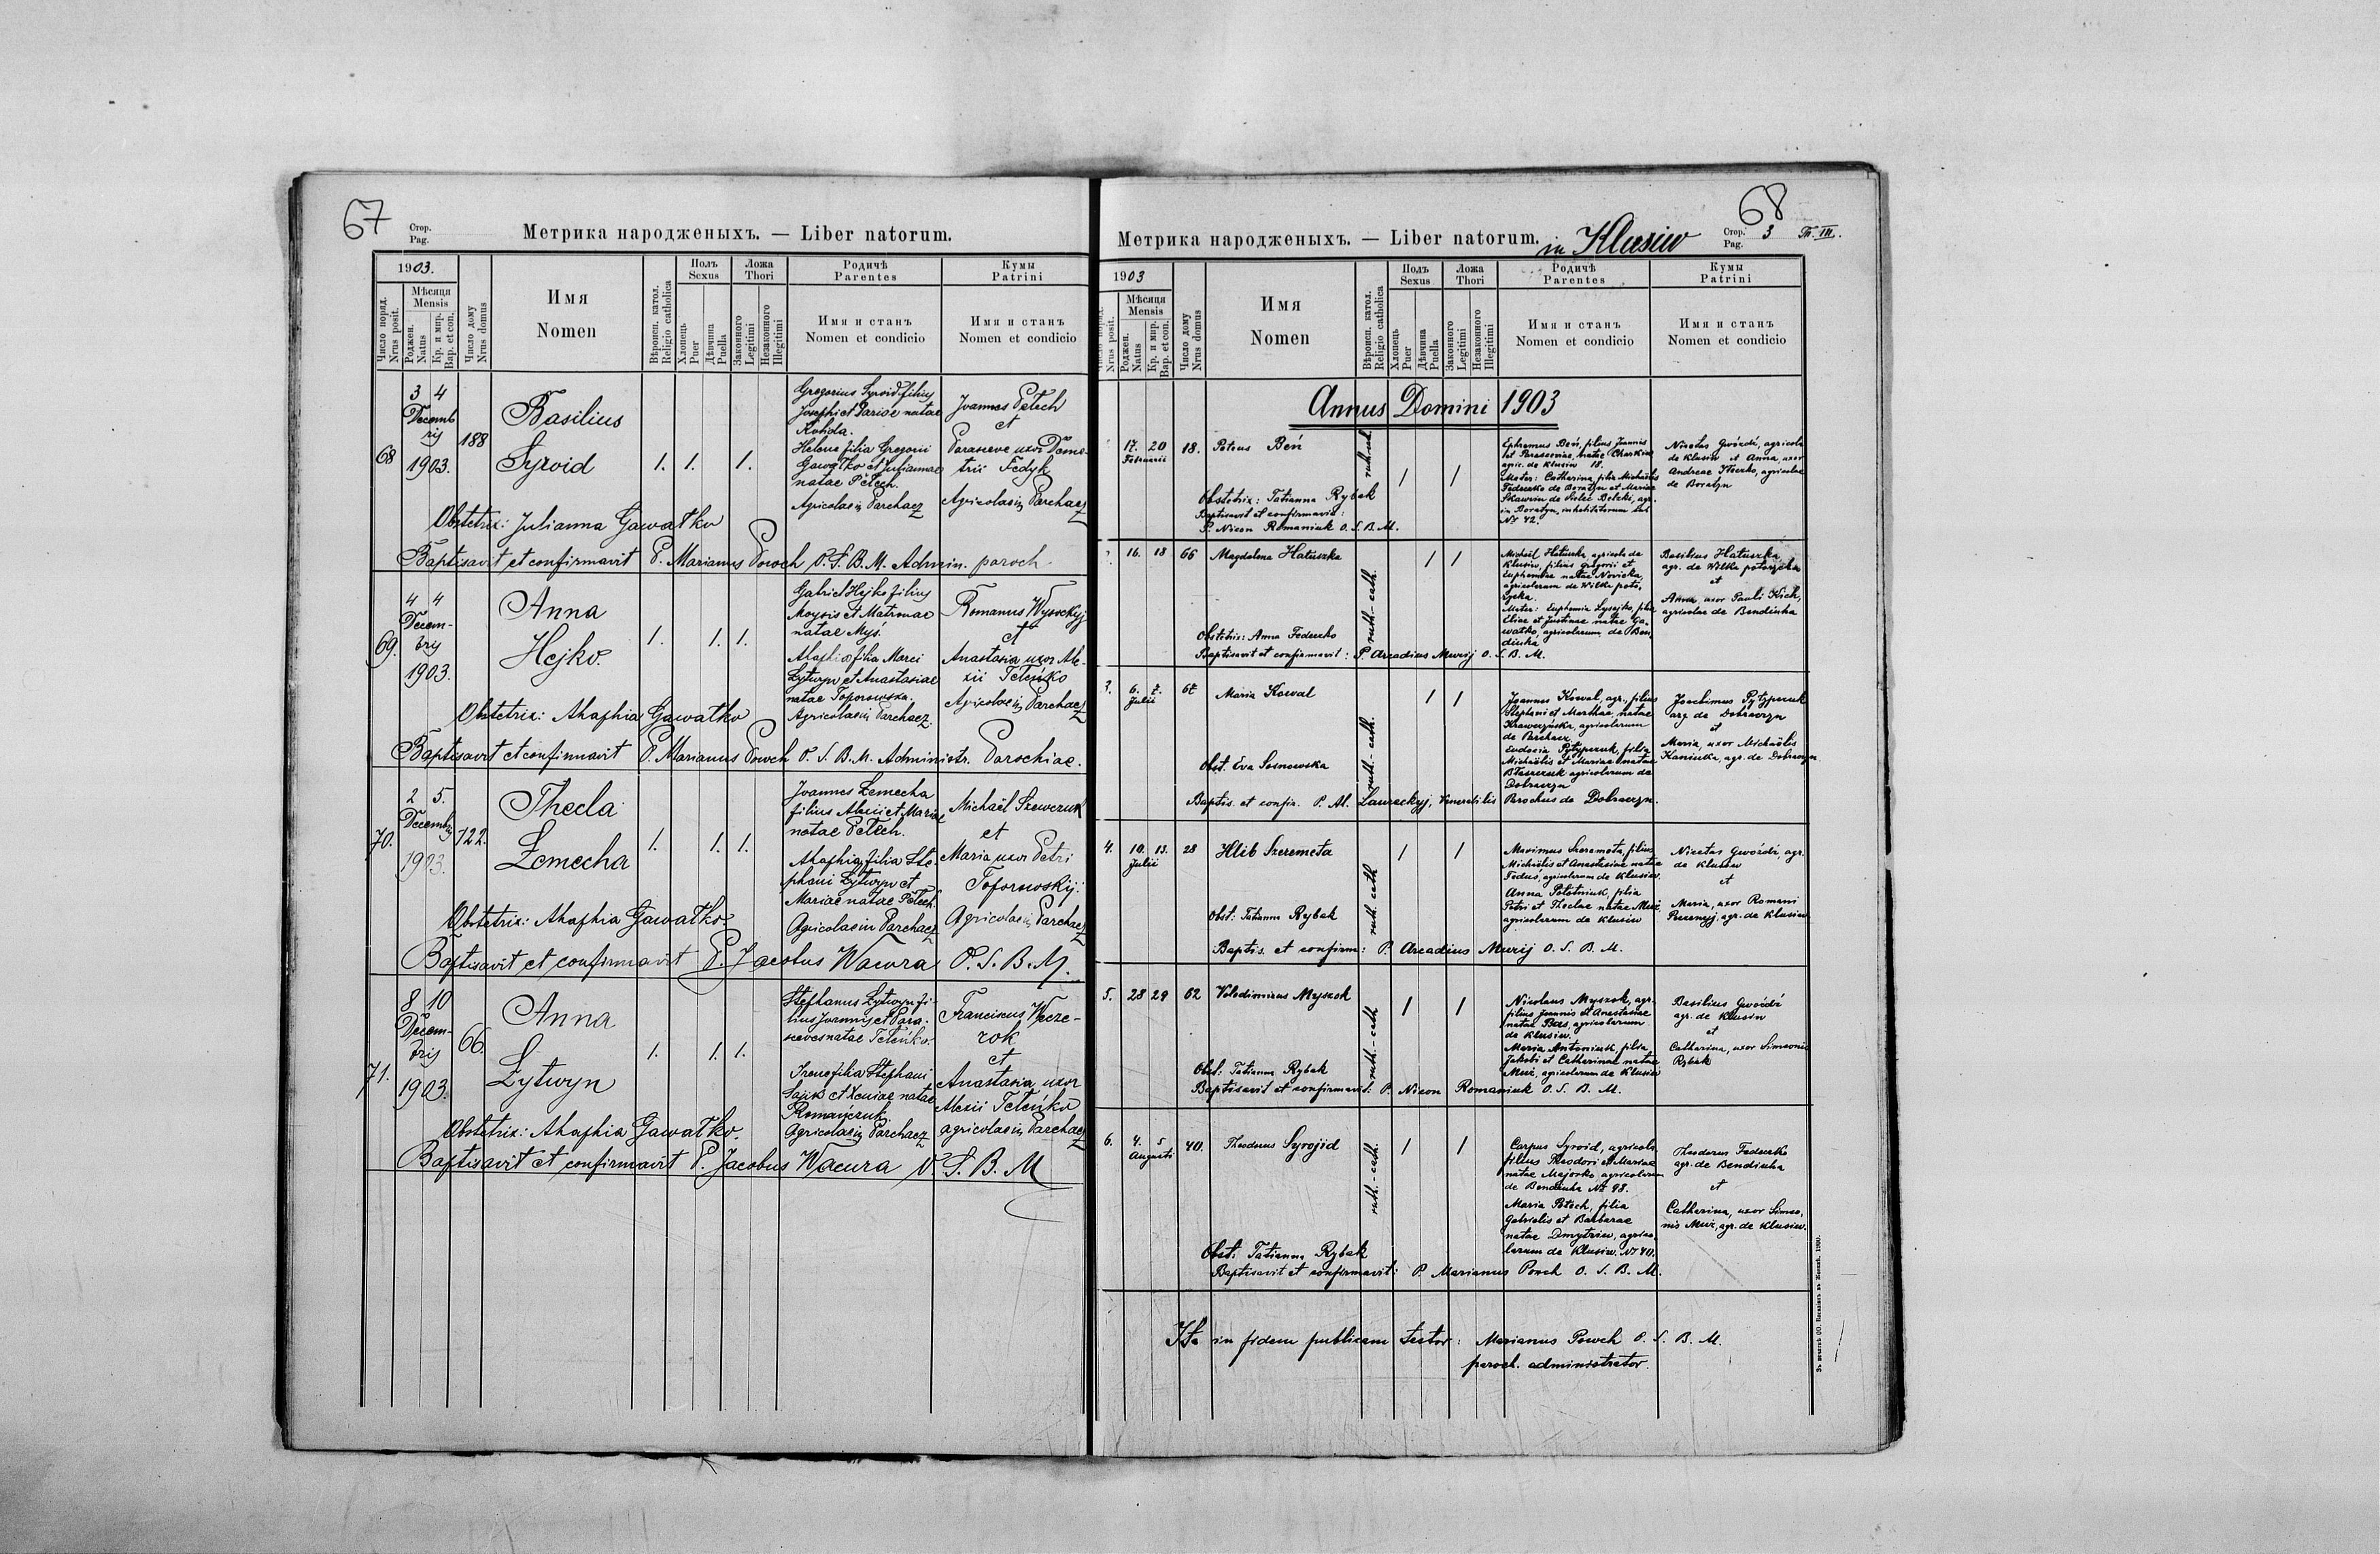 67
Стор.
Pag.
Метрика народженыхъ. — Liber natorum.
1903.
Число поряд.
Nrus posit.
Мѣсяця
Mensis
Роджен.
Natus
Кр. и мир.
Bap. et con.
Число дому
Nrus domus
Имя
Nomen
Вѣроисп. катол.
Religio catholica
Полъ
Sexus
Хлопець
Puer
Дѣвчина
Puella
Ложа
Thori
Законного
Legitimi
Незаконного
Illegitimi
Родичѣ
Parentes
Имя и станъ
Nomen et condicio
Кумы
Patrini
Имя и станъ
Nomen et condicio
68
3 4
Decemb
ris
1903.
188
Basilius
Syroid
1. 1. 1.
Gregorius Syroid filius
Josephi et Mariae natae
Helena filia Gregorii
Gawałko et Juliannae
natae Petech.
Agricolae in Parchacz
Joannes Petech
et
Parasceve uxor Deme-
trii Fedyk
Agricolae in Parchacz
Obstetrix: Julianna Gawałko
Baptisavit et confirmavit P. Marianus Powch O. S. B. M. Admin. paroch
69.
4 4
Decem-
bris
1903.
Anna
Hejko.
1. 1. 1.
Gabriel Hejko filius
Moysis et Matronae
natae Myś.
Ahaphia filia Marci
Łytwyn et Anastasiae
natae Toporowska.
Agricolae in Parchacz.
Romanus Wysockyj
et
Anastasia uxor Ale-
xii Teteńko
Agricolae in Parchacz
Obstetrix: Ahaphia Gawałko
Baptisavit et confirmavit P. Marianus Powch O. S. B. M. Administr. Parochiae.
70.
2 5.
Decembris
1903.
122.
Thecla
Łemecha
1. 1. 1.
Joannes Łemecha
filius Alexii et Mariae
natae Petech.
Ahaphia filia Ste-
phani Łytwyn et
Mariae natae Petech.
Agricolae in Parchacz
Michaël Szewczuk
et
Maria uxor Petri
Toporowskij.
Agricolae in Parchacz
Obstetrix: Ahaphia Gawałko.
Baptisavit et confirmavit P. Jacobus Wacura O. S. B. M.
71.
8 10
Decem-
bris
1903.
66.
Anna
Łytwyn
1. 1. 1.
Stephanus Łytwyn fi-
lius Joannis et Para-
scevesnatae Teteńko.
Irene filia Stephani
et Xeniae natae
Romańczuk
Agricolae in Parchacz
Franciscus Wecze-
rok
et
Anastasia uxor
Alexii Teteńko
agricolae in Parchacz
Obstetrix: Ahaphia Gawałko.
Baptisavit et confirmavit P. Jacobus Wacura O. S. B. M
68
Стор.
Pag.
3 Th. III.
Метрика народженыхъ. — Liber natorum. in Klusiw
1903
Nrus posit.
Мѣсяця
Mensis
Роджен.
Natus
Кр. и мир.
Bap. et con.
Число дому
Nrus domus
Имя
Nomen
Вѣроисп. катол.
Religio catholica
Полъ
Sexus
Хлопець
Puer
Дѣвчина
Puella
Ложа
Thori
Законного
Legitimi
Незаконного
Illegitimi
Родичѣ
Parentes
Имя и станъ
Nomen et condicio
Кумы
Patrini
Имя и станъ
Nomen et condicio
Annus Domini 1903
17. 20
Februarii
18.
Petrus Beń
ruth. cath.
/ /
Ephremus Beń, filius Joannis
et Parasceviae, natae Charkiw
agric. de Klusiw 18.
Mater: Catharina, filia Michaëlis
Fedeczko de Boratyn et Mariae
Skawrin de Sielec Bełzki, agr.
in Boratyn, inhabitatorum sub
No 42.
Nicetas Gwóźdź, agricola
de Klusiw et Anna, uxor
Andreae agricolae
de Boratyn
Obstetrix: Tatianna Rybak
Baptisavit et confirmavit:
P. Nicon Romaniuk O. S. B. M.
16. 18
66
Magdalena Hałuszka
ruth.- cath.
/ /
Michaël Hałuszka, agricola de
Klusiw, filius Gregorii et
Euphemiae natae Nowicka,
agricolarum de Wilka poto-
rycka.
Mater: Euphemia Łysejko, filia
Eliae et Justinae natae Ga-
wałko, agricolarum de Ben-
diuha
Basilius Hałuszka
agr. de Wilka potorycka
et
Anna, uxor Pauli Kich,
agricolae de Bendiuha
Obstetrix: Anna Fedeczko
Baptisavit et confirmavit: P. Arcadius Muryj O. S. B. M.
3.
6. 7.
Julii
67
Maria Kowal
ruth.- cath.
/ /
Joannes Kowal, agr., filius
Stephani et Marthae, natae
Krawczyńska, agricolarum
de Parchacz.
Eudocia Pytypczuk, filia
Michaëlis et Mariae natae
Błaszczuk agricolarum de
Dobraczyn
Joachimus Pytypczuk
agr. de Dobraczyn
et
Maria, uxor Michaëlis
Kaniuka, agr. de Dobraczyn
Obst. Eva Sosnowska
Baptis. et confir. P. Al. Laureckyj, Venerabilis Parochus de Dobraczyn.
4.
10. 13.
Julii
28
Hlib Szeremeta
ruth. cath
/ /
Maximus Szeremeta, filius
Michaëlis et Anastasiae natae
Fedus, agricolarum de Klusiw.
Anna Połotniuk, filia
Petri et Theclae natae Muż,
agricolarum de Klusiw
Nicetas Gwóźdź, agr.
de Klusiw
et
Maria, uxor Romani
agr. de Klusiw
Obst: Tatianna Rybak
Baptis. et confirm: P. Arcadius Muryj O. S. B. M.
5.
28 29
62
Volodimirus Myszok
ruth.- cath
/ /
Nicolaus Myszok, agr.
filius Joannis et Anastasiae
natae Bas, agricolarum
de Klusiw.
Maria Antoniuk, filia
Jakobi et Catharinae natae
Muż, agricolarum de Klusiw
Basilius Gwóźdź
agr. de Klusiw
et
Catharina, uxor Simeonis
Rybak
Obst: Tatianna Rybak
Baptisavit et confirmavit: P. Nicon Romaniuk O. S. B. M.
6.
4. 5
Augusti
40.
Theodorus Syrojid
ruth.- cath.
/ /
Carpus Syroid, agricola
filius Theodori et Mariae
natae Majorko, agricolarum
de Bendiuha No 98.
Maria Petech, filia
Gabrielis et Barbarae
natae Dmytriw, agrico-
larum de Klusiw. No 40.
Theodorus Fedeczko
agr. de Bendiuha
et
Catharina, uxor Simeo-
nis Muż, agr. de Klusiw.
Obst: Tatianna Rybak
Baptisavit et confirmavit: P. Marianus Powch O. S. B. M.
Ita in fidem publicam testor: Marianus Powch O. S. B. M.
paroch. administrator.